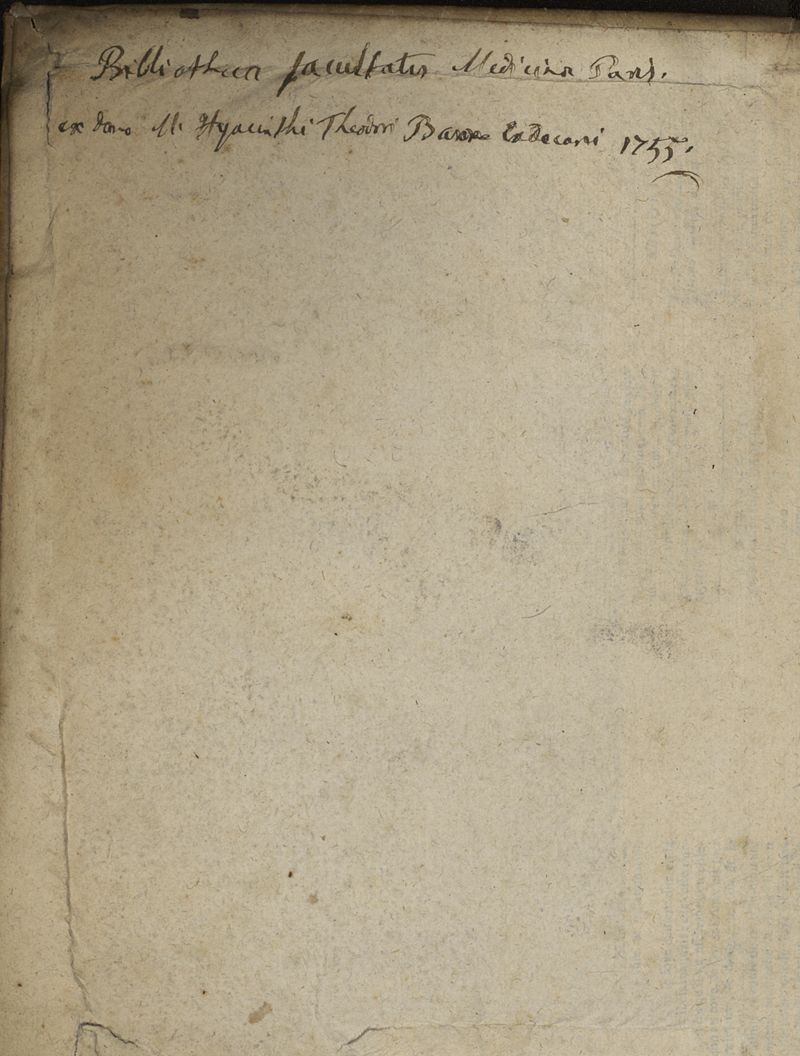 Bibliotheca facultatis Medicinæ Paris.
ex dono M. Hyacinthi Theodori Baron Exdecani 1755.